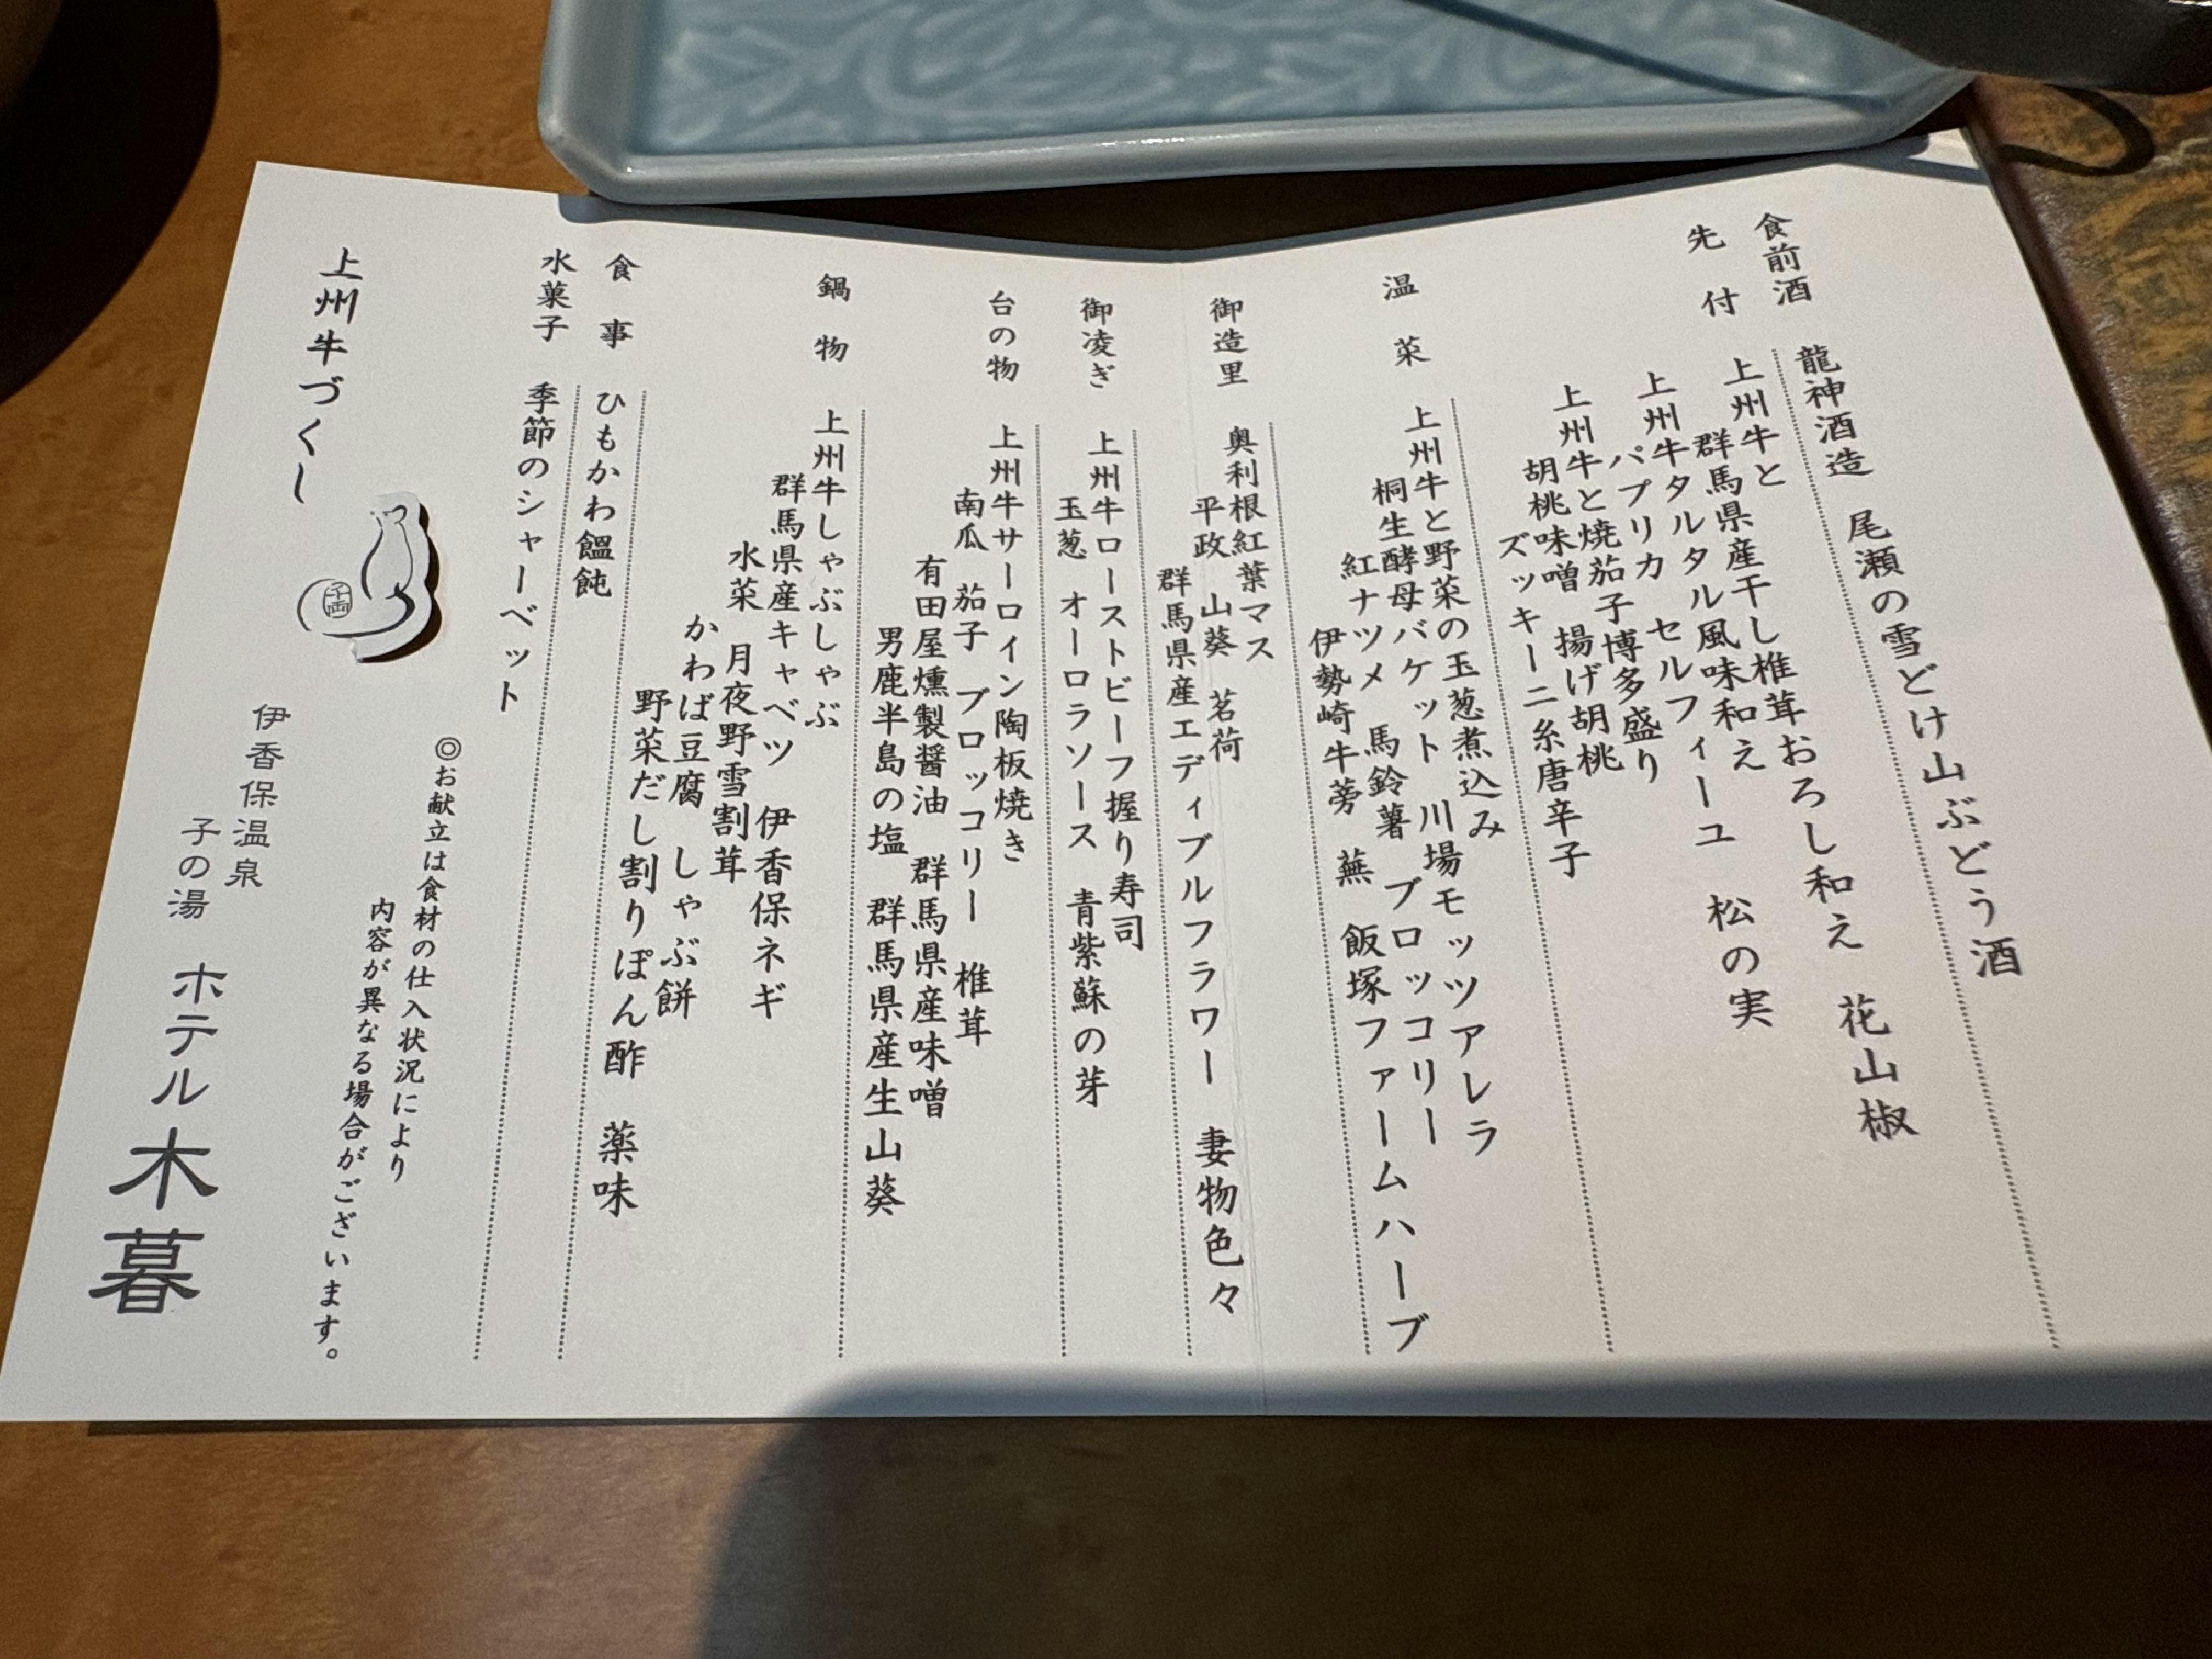 食前酒 龍神酒造 尾瀬の雪どけ山ぶどう酒
先付 上州牛と
群馬県産干し椎茸おろし和え 花山椒
上州牛タルタル風味和え
パプリカ セルフィーユ 松の実
上州牛と焼茄子博多盛り
胡桃味噌 揚げ胡桃
ズッキーニ 糸唐辛子
温菜 上州牛と野菜の玉葱煮込み
桐生酵母バケット 川場モッツアレラ
紅ナツメ 馬鈴薯 ブロッコリー
伊勢崎牛蒡 蕪 飯塚ファームハーブ
御造里 奥利根紅葉マス
平政 山葵 茗荷
群馬県産エディブルフラワー 妻物色々
御凌ぎ 上州牛ローストビーフ握り寿司
玉葱 オーロラソース 青紫蘇の芽
台の物 上州牛サーロイン陶板焼き
南瓜 茄子 ブロッコリー 椎茸
有田屋燻製醤油 群馬県産味噌
男鹿半島の塩 群馬県産生山葵
鍋物 上州牛しゃぶしゃぶ
群馬県産キャベツ 伊香保ネギ
水菜 月夜野雪割茸
かわば豆腐 しゃぶ餅
野菜だし割りぽん酢 薬味
食事 ひもかわ饂飩
水菓子 季節のシャーベット
◎お献立は食材の仕入状況により
内容が異なる場合がございます。
上州牛づくし
千両
伊香保温泉
子の湯 ホテル木暮